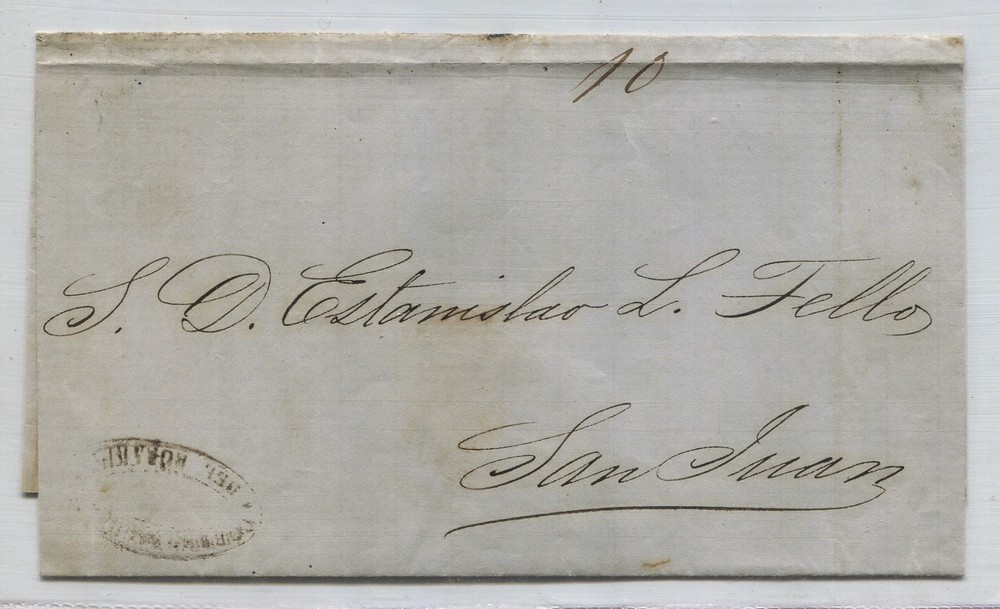 10
S. D. Estanislao L. Tello
San Juan
DEL ROSARIO